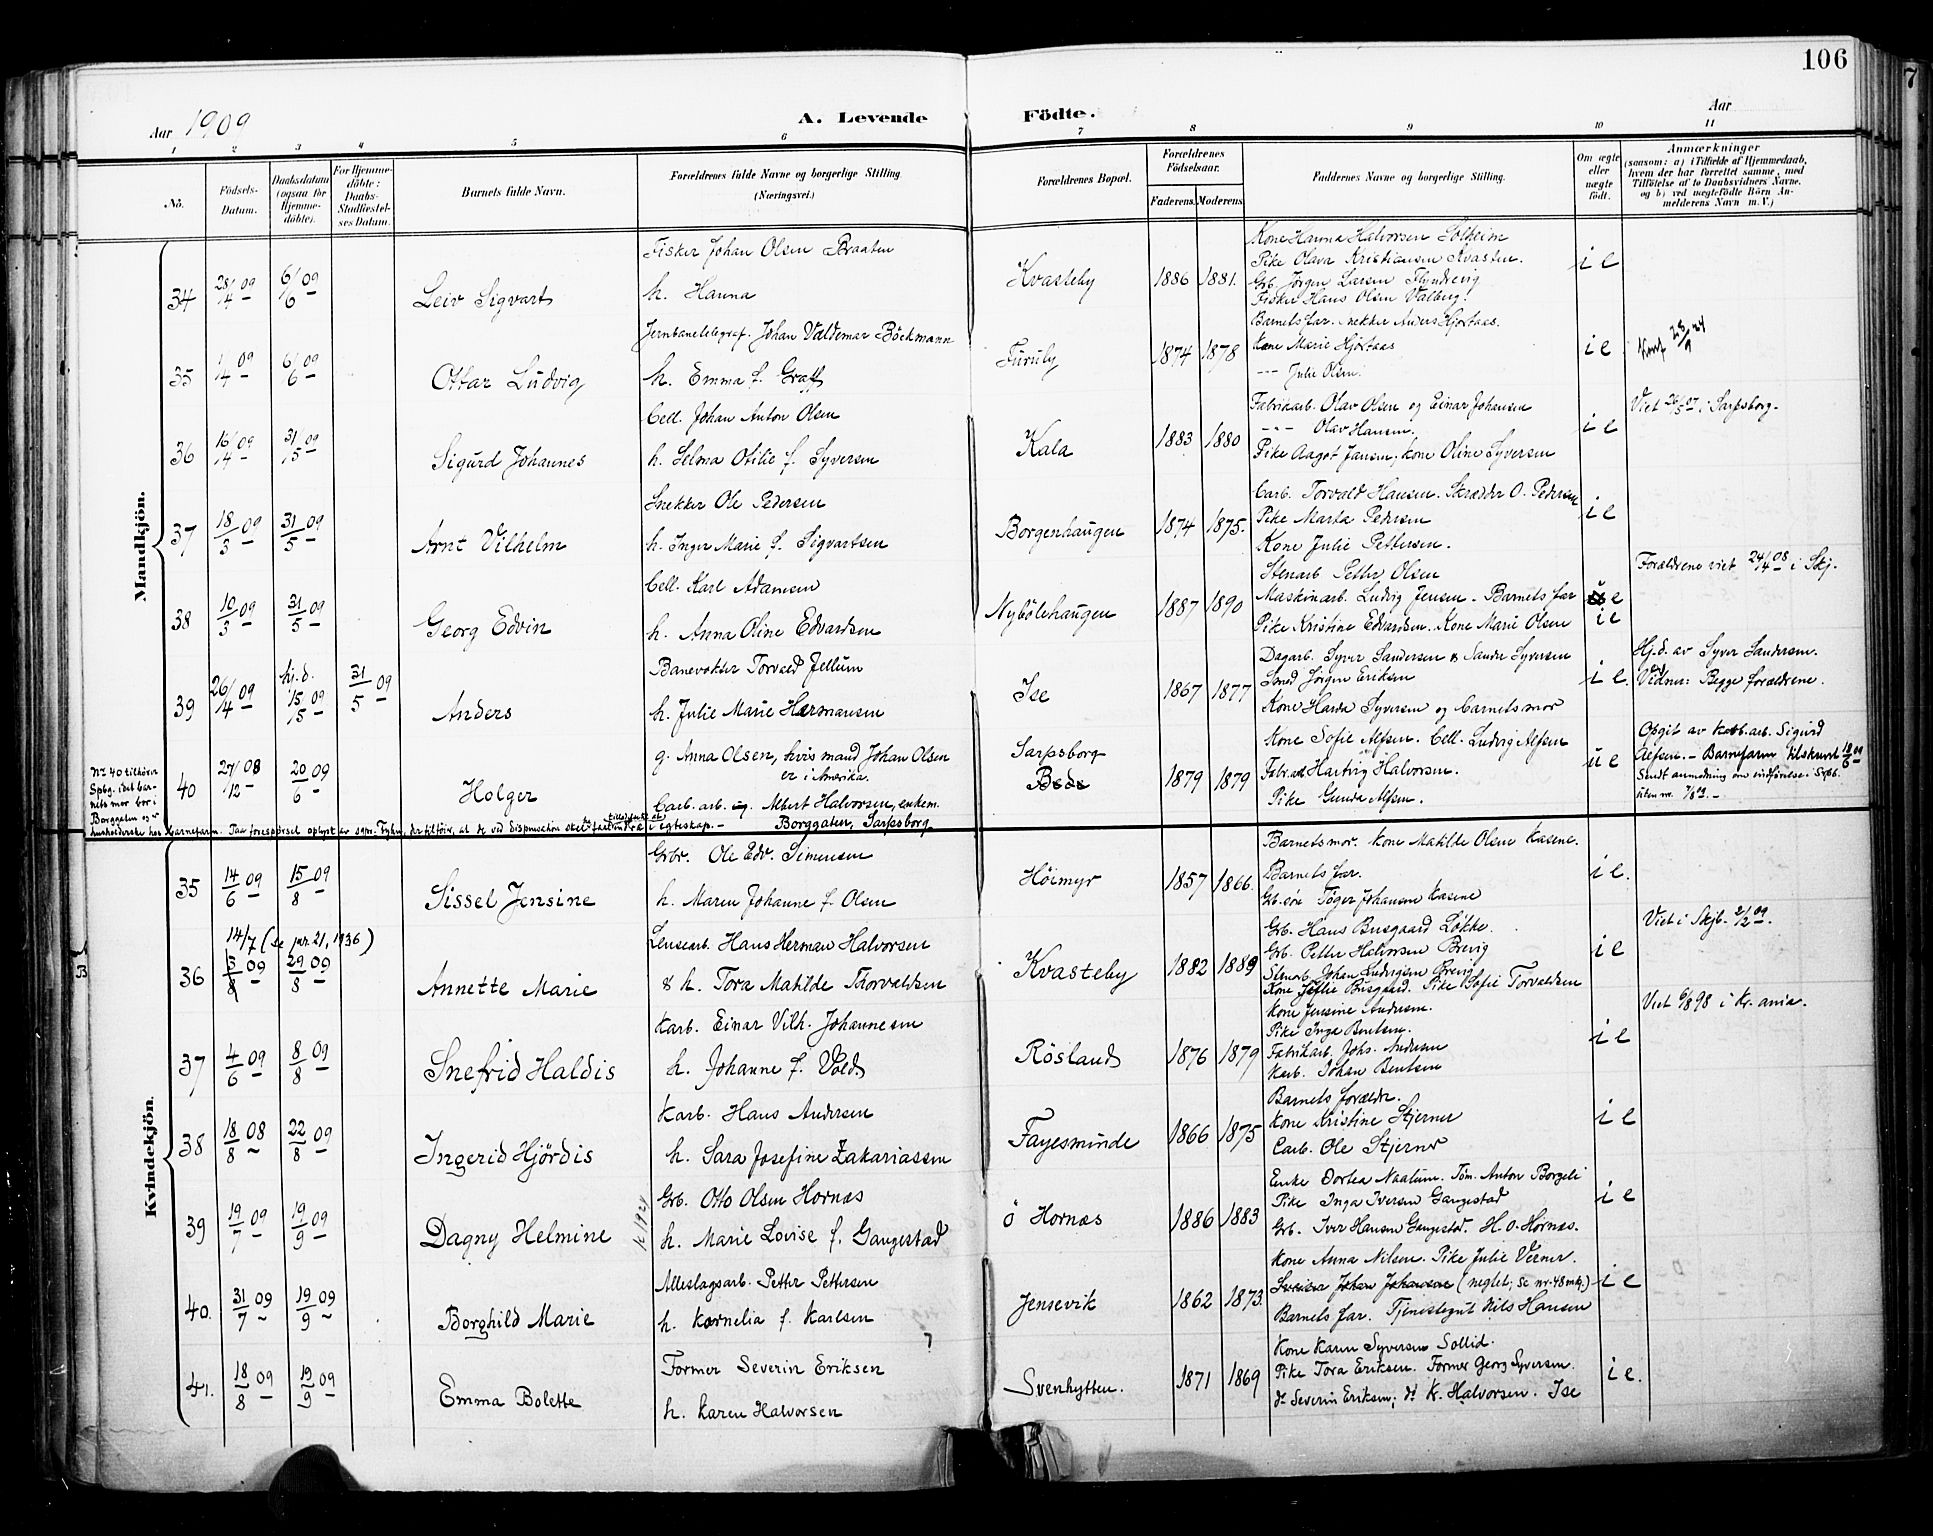 106
Aar 1909
A. Levende Födte.
Aar
1 2 3 4 5 6 7 8 9 10 11
No.
Födsels-Datum.
Daabsdatum (ogsaa for Hjemme-döbte).
For Hjemme-döbte: Daabs-Stadfæstel-ses Datum.
Barnets fulde Navn.
Forældrenes fulde Navne og borgerlige Stilling (Næringsvei.)
Forældrenes Bopæl.
Forældrenes Födselsaar.
Faderens. Moderens.
Faddernes Navne og borgerlige Stilling.
Om ægte eller uægte födt.
Anmærkninger
(saasom: a) i Tilfælde af Hjemmedaab, hvem der har forrettet samme, med Tilföielse af to Daabsvidners Navne, og b) ved uægtefödte Börn Anmelderens Navn m. V.)
Mandkjön.
34 28/4 09 6/6 09 Leiv Sigvart
Fisker Johan Olsen Braaten
h. Hanna
Kvasteby 1886 1881.
Kone Hanna Halvorsen Solheim
Pike Olava Kristiansen Kvasten.
Grb. Jörgen Larsen Flyndrevig
Fisker Hans Olsen Valberg.
i e
35 1/4 09 6/6 09 Ottar Ludvig
Jernbanetelegraf. Johan Valdemar Böckmann
h. Emma f. Graff
Furuly 1874 1878
Barnets far. Snekker Anders Hjortaas.
Kone Marie Hjortaas
--- Julie Olsen.
i e
Konf 28/9 24
36 16/4 09 31/5 09 Sigurd Johannes
Cell. Johan Anton Olsen
h. Selma Otilie f. Syversen
Kala 1883 1880
Fabrikarb. Olav Olsen og Einar Johansen
--- Olav Hansen.
Pike Aagot Jansen, kone Oline Syversen
i e
Viet 26/5 07 i Sarpsborg.
37 18/3 09 31/5 09 Arnt Vilhelm
Snekker Ole Pedersen
h. Inger Marie f. Sigvartsen
Borgenhaugen 1874 1875.
Carb. Torvald Hansen. Skrædder O. Pedersen
Pike Marta Pedersen
Kone Julie Pettersen.
i e
38 10/3 09 31/5 09 Georg Edvin
Cell. Karl Adamsen
h. Anna Oline Edvardsen
Nybölehaugen 1887 1890
Stenarb Petter Olsen
Maskinarb. Ludvig Jensen. Barnets far
Pike Kristine Edvardsen. Kone Marie Olsen
i e
Forældrene viet 24/4 08 i Skj.
39 26/4 09 hj.d. 15/5 09 31/5 09 Anders
Banevokter Torvald Jellum
h. Julie Marie Hermansen
Ise 1867 1877
Dagarb. Syver Sandersen & Sander Syversen
Smed Jörgen Eriksen
Kone Harda Syversen og barnets mor
i e.
Hj.d. av Syver Sandersen.
Vidner: Begge forældrene.
40 27/12 08 20/6 09 Holger
g. Anna Olsen, hvis mand Johan Olsen er i Amerika.
Carb. arb. ug. Albert Halvorsen, enkem.
Borggaten, Sarpsborg
Sarpsborg
Bede
1879 1879
Kone Sofie Alfsen. Cell. Ludvig Alfsen
Fabr.arb Hartvig Halvorsen.
Pike Gunda Alfsen.
u e
Opgit av karb.arb. Sigurd Alfsen. - Barnefaren tilskrevet 18/6 09
Sendt anmeldning om indförelse i Spbg. uten nr. 7/8 09. -
Nr. 40 tilhörer Spbg. idet barnets mor bor i Borggaten og er husholderske hos barnefaren. Paa forespörsel oplyst av
Kvindekjön.
35 14/6 09 15/8 09 Sissel Jensine
Grbr. Ole Edv. Simensen
h. Maren Johanne f. Olsen
Höimyr 1857 1866.
Barnets mor. Kone Matilde Olsen Kasene.
Barnets far.
Grb. Töger Johansen Kasene
i e.
14/7 (se jnr. 21, 1936)
36 3/8 09 29/8 09 Annette Marie
Lensearb. Hans Herman Halvorsen
& h. Tora Matilde Thorvaldsen
Kvasteby 1882 1889
Grb. Hans Busgaard Løkke.
Grb. Petter Halvorsen Brevig
Stenarb. Johan Ludvigsen Brevig
Kone Jellie Busgaard. Pike Sofie Torvaldsen
i e
Viet i Skjb. 2/2 09.
37 4/6 09 8/8 09 Snefrid Haldis
Karb. Einar Vilh. Johannesen
h. Johanne f. Vold
Rösland 1876 1879
Kone Jensine Andersen.
Pike Inga Bentsen.
Fabrikarb. Johs. Andersen
Karb. Johan Bentsen
i e
Viet 6/8 98 i Kr. ania.
38 18/8 08 22/8 09 Ingerid Hjördis
Karb. Hans Andersen
h. Sara Josefine Zakariassen
Fayesminde 1866 1875
Barnets forældre.
Kone Kristine Stjerner
Carb. Ole Stjerner
i e
39 19/7 09 19/9 09 Dagny Helmine
K 1924
Grb. Otto Olsen Hornæs
h. Marie Lovise f. Gangestad
Ö Hornæs 1886 1883
Enke Dortea Naalum. Töm. Anton Borgeli
Pike Inga Iversen Gangestad
Grb. Iver Hansen Gangestad. H. O. Hornæs.
i e
40. 31/7 09 19/9 09 Borghild Marie
Alleslagsarb. Petter Pettersen
h. Kornelia f. Karlsen
Jensevik 1862 1873.
Kone Anna Nilsen. Pike Julie Verner.
Johan Johansen (neglet; se nr. 48 mkj.)
Barnets far. Tjenestegut Nils Hansen
i e
41. 18/8 09 19/9 09 Emma Bolette
Former Severin Eriksen
h. Karen Halvorsen
Svenhytten. 1871 1869
Kone Karen Syversen Sollid.
Pike Tora Eriksen. Former Georg Syversen.
do Severin Eriksen; do K. Halvorsen. Ise
i e.